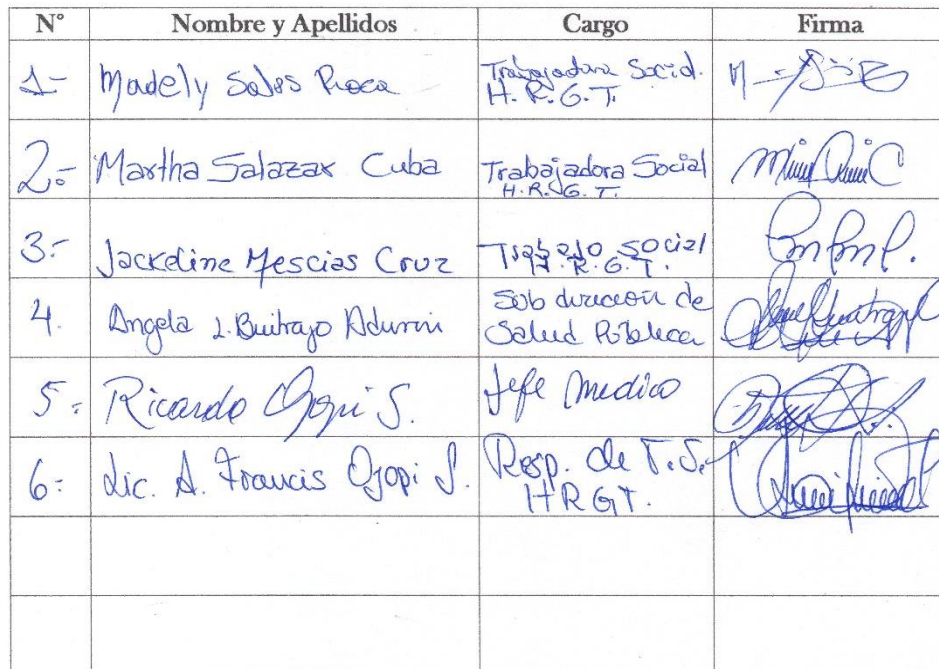 N° Nombre y Apellidos Cargo Firma
1- Madely Sales Roca Trabajadora Social.
H. R. G. T.
2.- Martha Salazar Cuba Trabajadora Social
H. R. G. T.
3.- Jackeline Mescias Cruz Trabajo Social
H. R. G. T.
4. Angela L. Buitrago Sub dirección de
Salud Pública
5. Ricardo Ojopi S. Jefe Medico
6. Lic. A. Francis Ojopi S. Resp. de T.S.
HRGT.